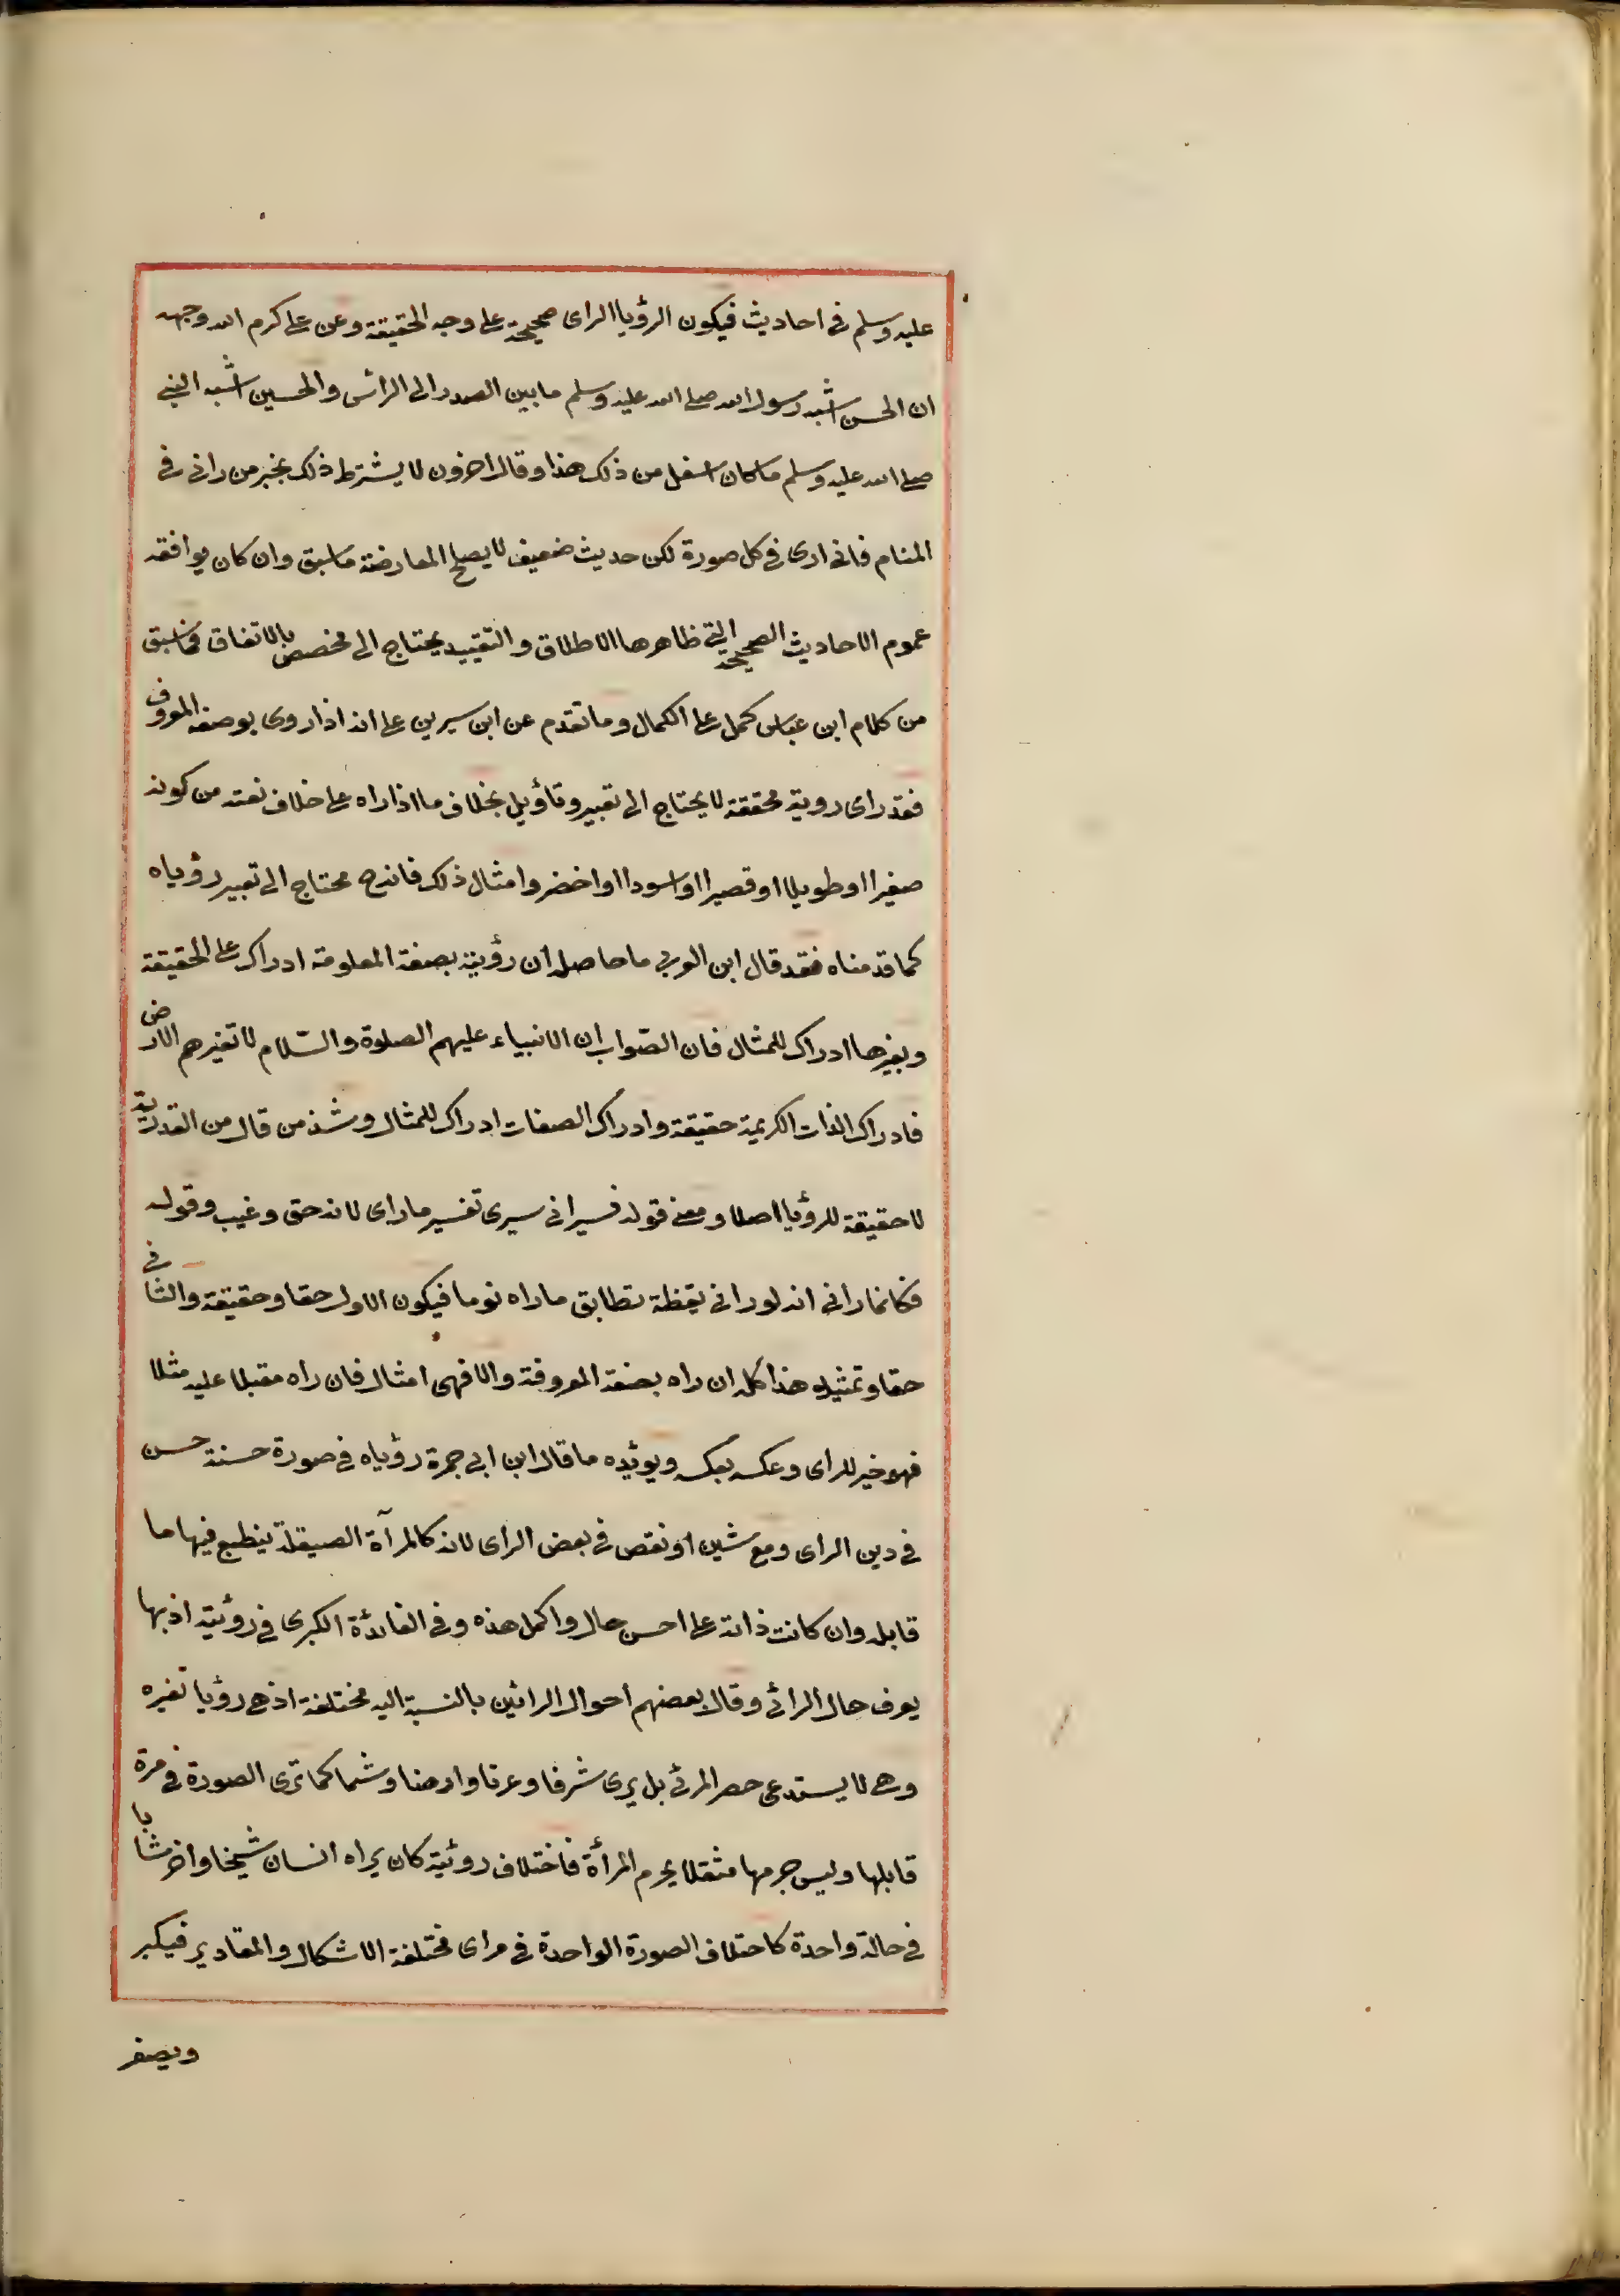 عليه وسلم فى احاديث فيكون الرؤيا الراى صحيحة على وجه الحقيقة وعن على كرم الله وجهه
ان الحسن اشبه رسول الله صلى الله عليه وسلم ما بين الصدر الى الرأس والحسين اشبه النبى
صلى الله عليه وسلم ما كان اسفل من ذلك هذا وقال اخرون لا يشترط ذلك بخبر من رانى فى
المنام فانى ارى فى كل صورة لكن حديث ضعيف لا يصلح المعارضة ما سبق وان كان يوافقه
عموم الاحاديث الصحيحة التى ظاهرها الاطلاق والتقييد يحتاج الى مخصص بالاتفاق فما سبق
من كلام ابن عباس حمل على الكمال وما تقدم عن ابن سيرين على انه اذا روى بوصفه المعروف
فقد راى روية محققة لا يحتاج الى تعبير وتأويل بخلاف ما اذا راه على خلاف نعته من كونه
صغيرا او طويلا او قصيرا او اسودا او اخضر وامثال ذلك فانه ح محتاج الى تعبير رؤياه
كما قدمناه فقد قال ابن العربى ما حاصله ان رؤيته بصفة المعلومة ادراك على الحقيقة
وبغيرها ادراك للمثال فان الصواب ان الانبياء عليهم الصلوة والسلام لا تغيرهم الارض
فادراك الذات الكريمة حقيقة وادراك الصفات ادراك للمثال وشذ من قال من القدرية
لا حقيقة للرؤيا اصلا ومعنى قوله فسيرانى سيرى تفسير ما راى لانه حق وغيب وقوله
فكانما رانى انه لو رانى يقظة تطابق ما راه نوما فيكون الاول حقا وحقيقة والثانى
حقا وتمثيلا هذا كله ان راه بصفة المعروفة والا فهى امثال فان راه مقبلا عليه مثلا
فهو خير للراى وعكسه بعكسه ويؤيده ما قال ابن ابى جمرة رؤياه فى صورة حسنة حسن
فى دين الراى ومع شين او نقص فى بعض الراى لانه كالمرآة الصيقلة ينطبع فيها ما
قابله وان كانت ذاته على احسن حال واكمل هذه وفى الفائدة الكبرى فى رؤيته اذ بها
يعرف حال الرائى وقال بعضهم احوال الرائين بالنسبة اليه مختلفة اذ هى رؤيا تغيره
وهى لا يستدعى حصر المرئى بل يرى شرقا وغربا وارضا وشما كما ترى الصورة فى مرة
قابلها وليس جرمها منتقلا بجرم المرأة فاختلاف روئية كان يراه انسان شيخا واخر شابا
فى حالة واحدة كاختلاف الصورة الواحدة فى مراى مختلفة الاشكال والمقادير فيكبر
ويصغر